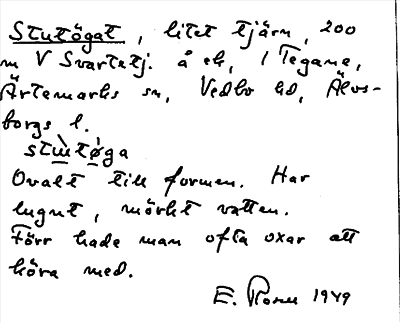 Stutögat, litet tjärn, 200
m V Svartetj. å ek, 1 Tegane,
Ärtemarks sn, Vedbo hd, Älvs-
borgs l.
Ovalt till formen. Har
lugnt, mörkt vatten.
Förr hade man ofta oxar att
köra med.
E. 1949